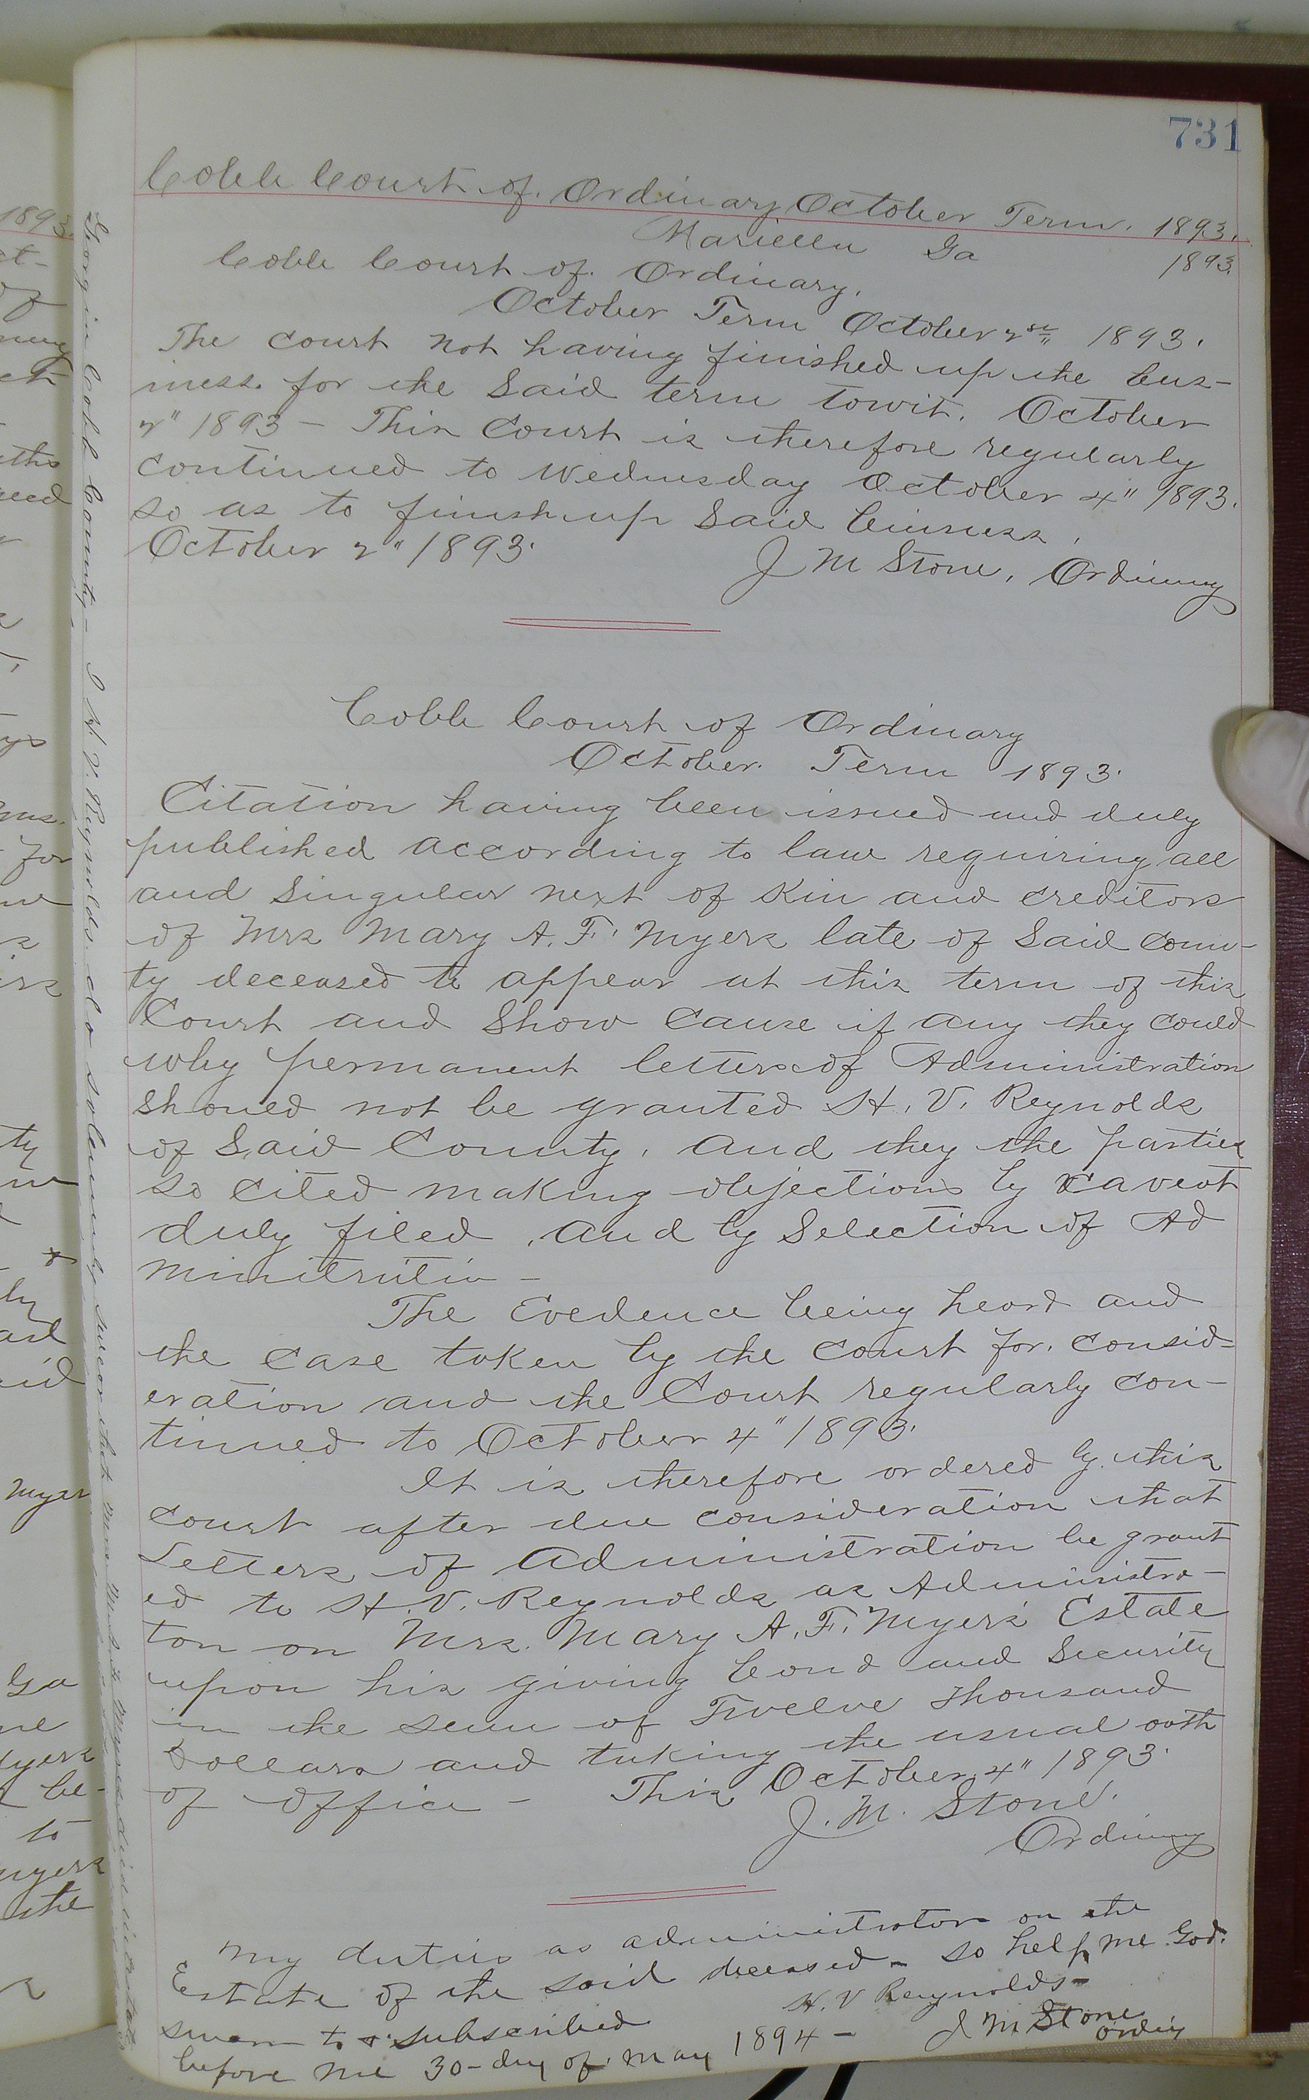 731
Cobb Court of Ordinary October Term. 1893.
Marietta Ga 1893.
Cobb Court of Ordinary.
October Term October 2nd 1893.
The court not having finished up the bus-
iness for the Said term towit. October
2" 1893 - This Court is therefore regularly
continued to Wednesday October 4" 1893.
so as to finish up Said business.
October 2" 1893. J M Stone, Ordinary
Cobb Court of Ordinary
October Term 1893.
Citation having been issued and duly
published according to law requiring all
and Singular next of Kin and creditors
of Mrs Mary A. F. Myers late of Said coun-
ty deceased to appear at this term of this
Court and Show Cause if any they could
why permanent letters of Administration
should not be granted H. V. Reynolds
of Said County, and they the parties
so cited making objections by caveat
duly filed, and by Selection of Ad
The Evedence being heard and
the case taken by the court for consid-
eration and the Court regularly con-
tinued to October 4" 1893.
It is therefore ordered by this
court after due consideration that
Letters of Administration be grant
ed to H. V. Reynolds as Administra-
tor on Mrs. Mary A. F. Myers Estate
upon his giving bond and Security
in the sum of Twelve thousand
Dollars and taking the usual oath
of office - This October 4" 1893.
J. M. Stone.
Ordinary
Georgia Cobb County - I H. V. Reynolds do solemnly swear that Myers died intestate
my duties as administrator on the
Estate of the said deceased - so help me God.
H. V Reynolds -
sworn to & subscribed
before me 30-day of May 1894 - J M Stone
Ordiny